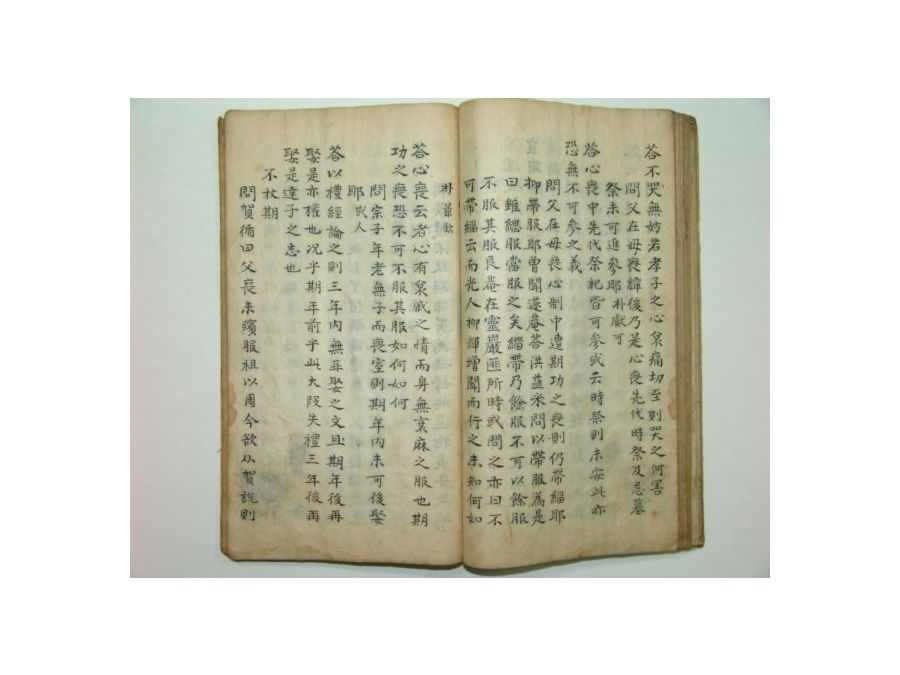 答不哭無妨若孝子之心哀痛切至則哭之何害
問父在母喪禫後乃是心喪先代時祭及忌墓
祭未可進參耶 朴獻可
答心喪中先代祭祀皆可參或云時祭則未安此亦
恐無不可參之義
問父在母喪心制中遭期功之喪則仍帶緇耶
抑帶服耶曾聞遂菴答洪益采問以帶服爲是
曰雖緦服當服之矣緇帶乃餘服不可以餘服
不服其服良菴在靈巖匪所時或問之亦曰不
可帶緇云而光人柳輝增聞而行之未知何如
朴景欽
答心喪云者心有哀戚之情而身無衰麻之服也期
功之喪恐不可不服其服如何如何
問宗子年老無子而喪室則期年內未可後娶
耶 或人
答以禮經論之則三年內無再娶之文且期年後再
娶是亦權也况乎期年前乎此大段失禮三年後再
娶是達子之志也
不杖期
問賀循曰父喪未殯服祖以周今欲从賀說則